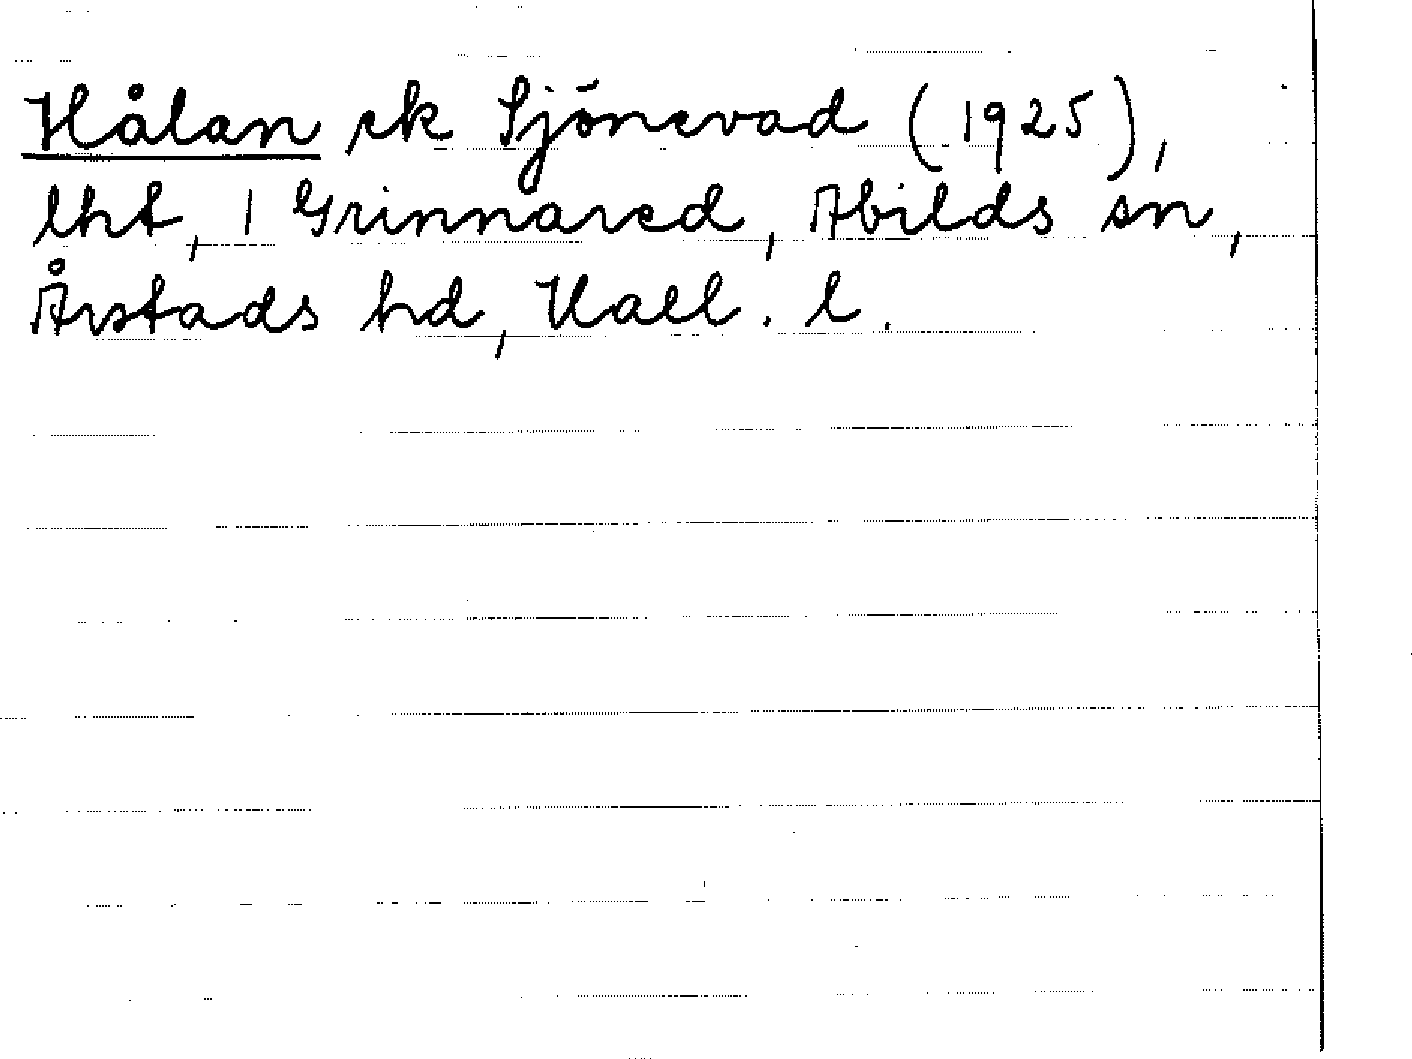 Hålan ek Sjönevad (1925),
lht, 1 Grinnared, Abilds sn,
Årstads hd, Hall. l.